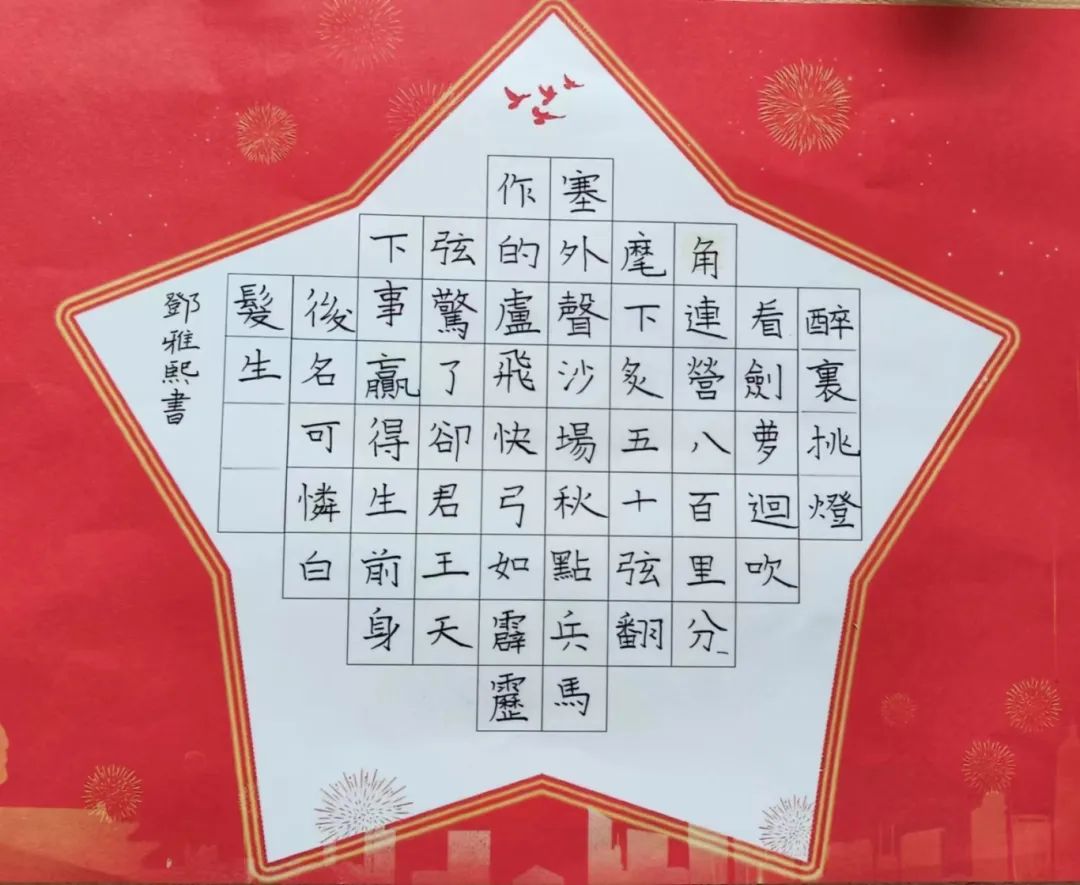 醉裏挑燈
看劍夢迴吹
角連營八百里分
麾下炙五十弦翻
塞外聲沙場秋點兵馬
作的盧飛快弓如霹靂
弦驚了卻君王天
下事贏得生前身
後名可憐白
髮生
鄧雅熙書